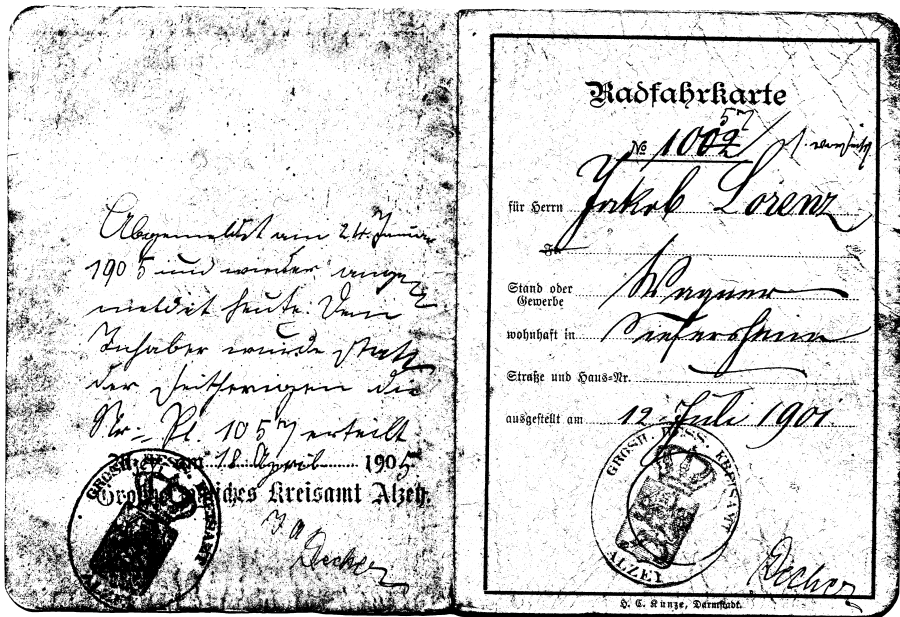 Abgemeldet am 24. Januar
1905 und wieder ange-
meldet heute. Dem
Inhaber wurde statt
der seitherigen die
Nr. Pl. 1057 erteilt
Alzey, am 18. April 1905
Großherzogliches Kreisamt Alzey.
J. A.
Becker
GROSH. HESS. KREISAMT
ALZEY
Radfahrkarte
57
№ 1002
für Herrn Jakob Lorenz
Stand oder Gewerbe Wagner
wohnhaft in Siefersheim
Straße und Haus-Nr.
ausgestellt am 12. Juli 1901.
GROSH. HESS. KREISAMT
ALZEY
Becker
H. C. Kunze, Darmstadt.